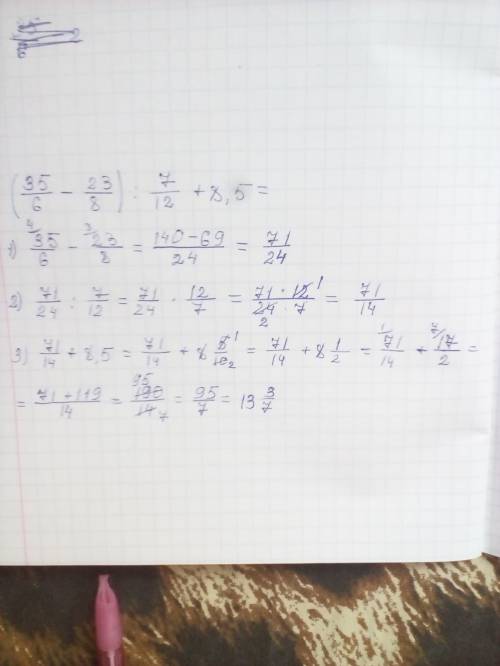 (35/6 - 23/8) : 7/12 + 8,5 =
1) 4/35/6 - 3/23/8 = 140-69/24 = 71/24
2) 71/24 : 7/12 = 71/24 · 12/7 = 71·12 1/24 2·7 = 71/14
3) 71/14 + 8,5 = 71/14 + 8 5 1/10 2 = 71/14 + 8 1/2 = 1/71/14 + 7/17/2 =
= 71+119/14 = 95 190/14 7 = 95/7 = 13 3/7